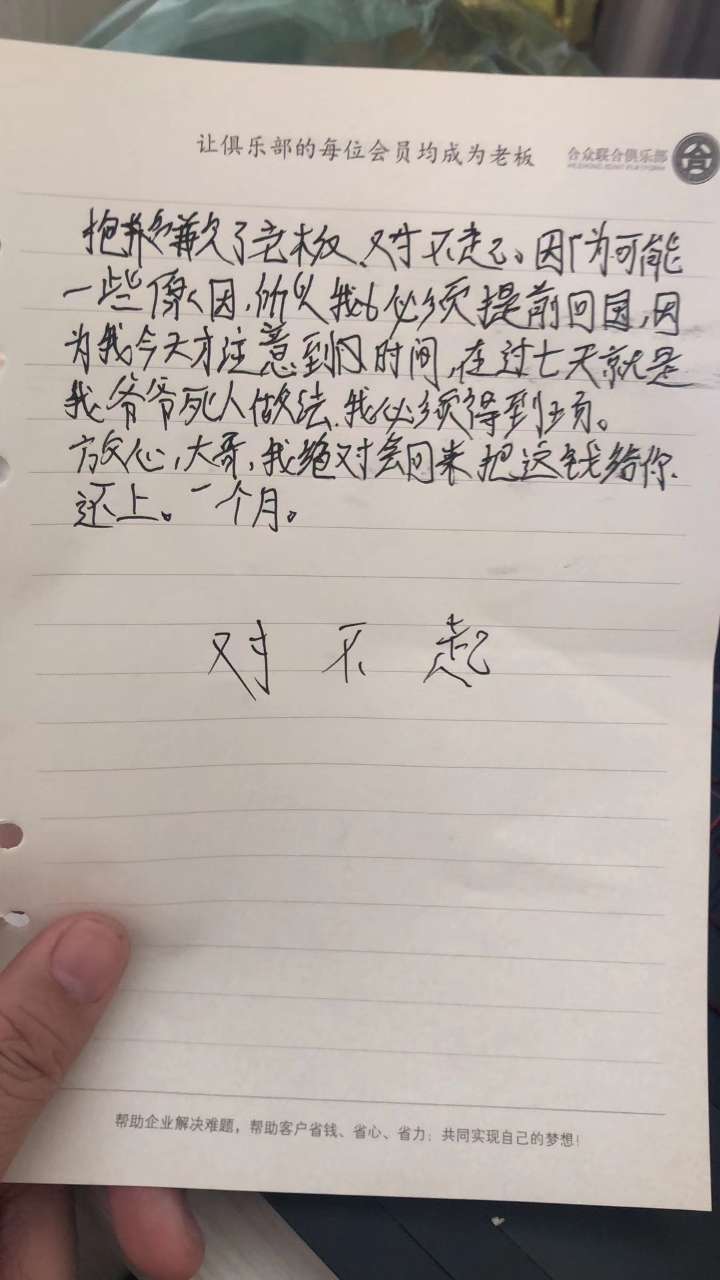 让俱乐部的每位会员均成为老板 合众联合俱乐部
抱歉了老板、对不起。因为可能
一些原因,所以我必须提前回国,因
为我今天才注意到时间,在过七天就是
我爷爷死人做法、我必须得到场。
放心,大哥,我绝对会回来把这钱给你
还上。一个月。
对不起
帮助企业解决难题,帮助客户省钱、省心、省力;共同实现自己的梦想!